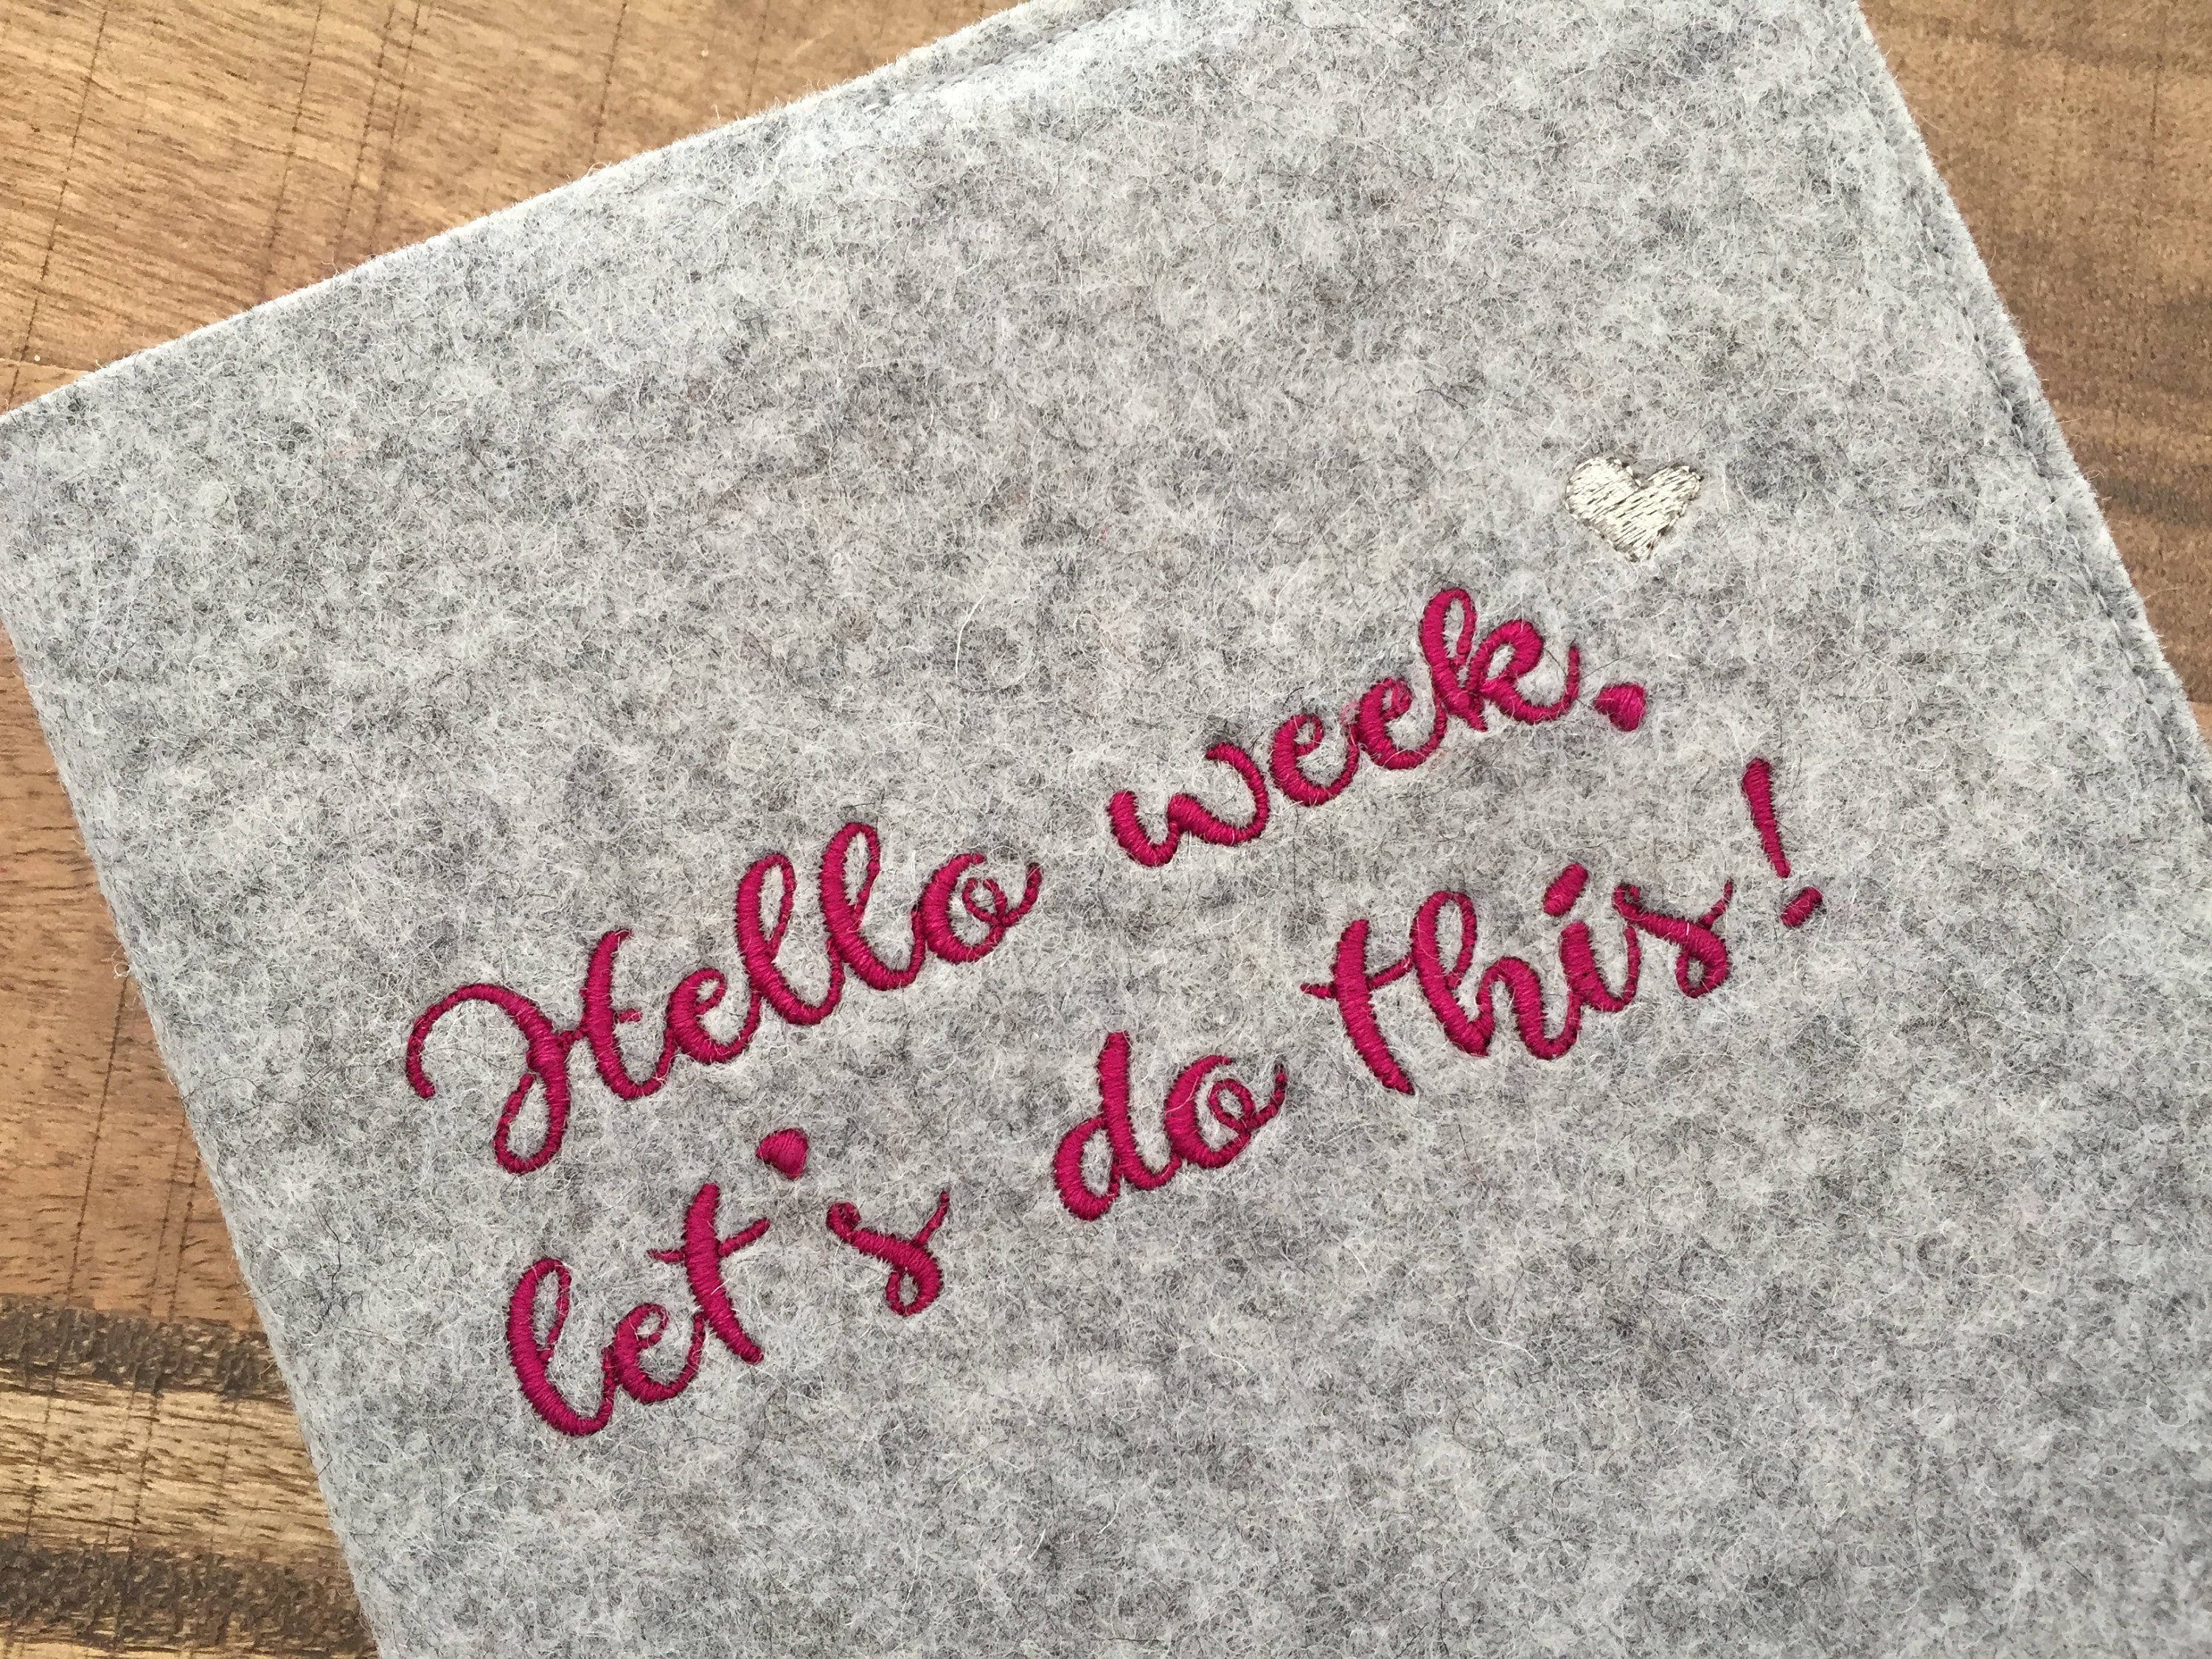 Hello week.
let's do this!